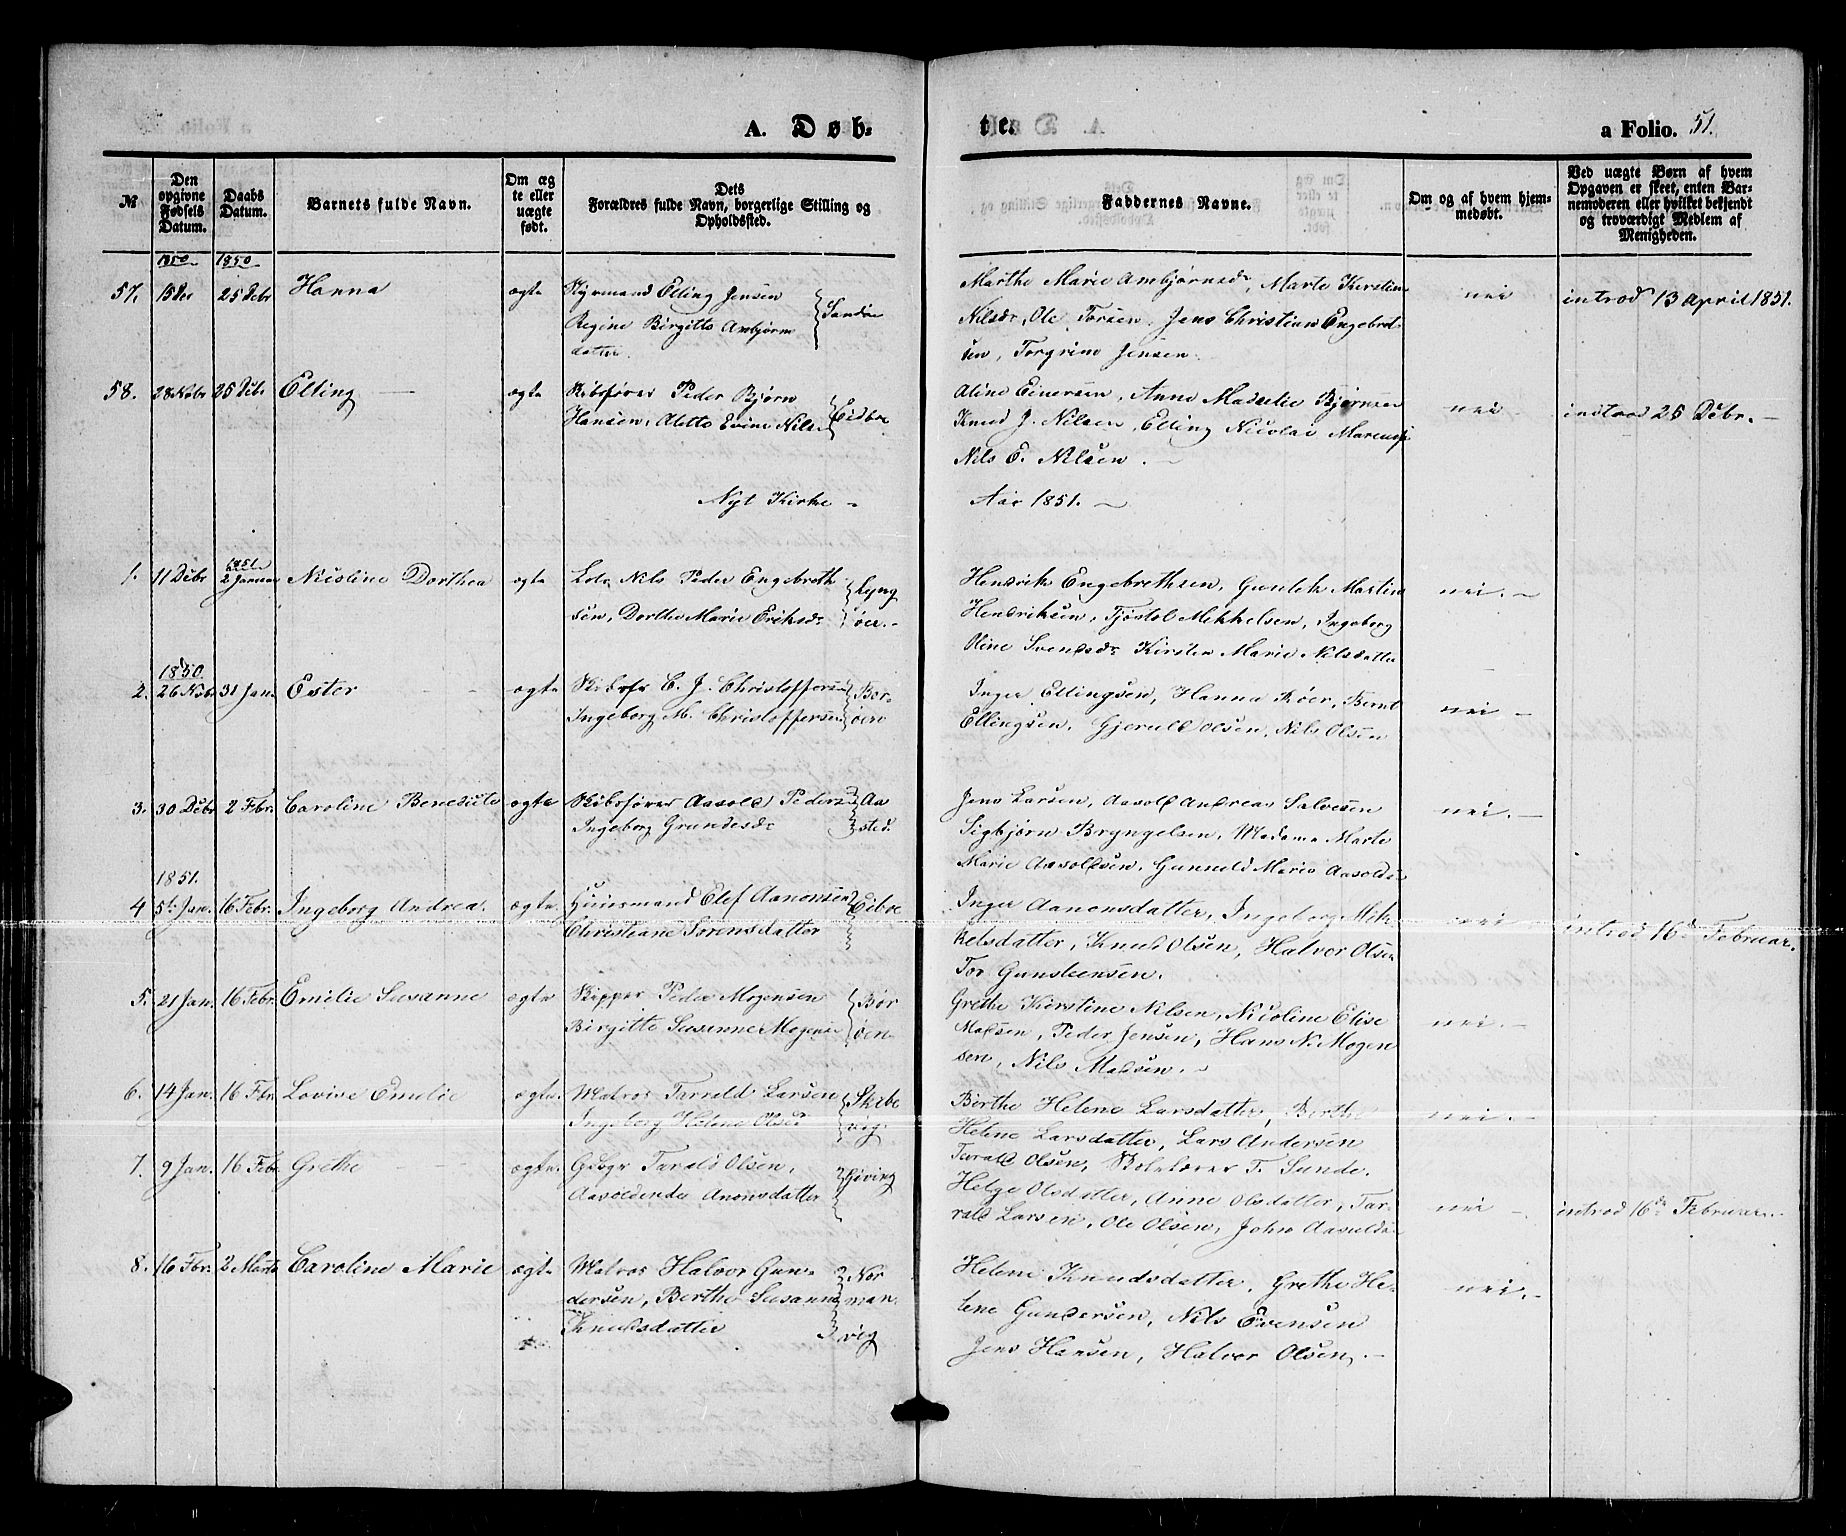 A. Døb-
te.
a Folio. 51.
№
Den opgivne Fødsels Datum.
Daabs Datum.
Barnets fulde Navn.
Om ægte eller uægte født.
Dets Forældres fulde Navn, borgerlige Stilling og Opholdssted.
Faddernes Navne.
Om og af hvem hjemmedøbt.
Ved uægte Børn af hvem Opgaven er skeet, enten Barnemoderen eller hvilket bekjendt og troværdigt Medlem af Menigheden.
1850 1850
57. 25 Debr Hanna ægte Elling Jensen
Regine Birgitte Anbjørns
datter.
Sandøe
Marthe Marie Anbjørnsd, Marte Kirstine
Nilsdr, Ole Torsen, Jens Christian Engebret-
sen, Torgrim Jensen.
nei introd 13 April 1851.
58. 28 Nobr 26 Debr Elling ægte Skibsfører Peder Bjørn
Hansen, Alette Evine Nils
Eidboe
Aline Einersen, Anne Madelie Bjørnsen
Knud J. Nilsen, Elling Nicolai
Nils E. Nilsen.
nei introd 26 Debr.
Nyt Kirke-
Aar 1851.
1851
1. 11 Debr 2 Januar Nilsline Dorthea ægte Lods Nils Peder Engebreth
sen, Dorthe Marie Eriksdr
Lyng
øer.
Hendrik Engebrethsen, Gunlek Martin
Hendriksen, Tjøstol Mekkelsen, Ingeborg
Oline Svendsdr Kirsten Marie Nilsdatter
nei.
1850.
2. 26 Nobr 31 Jan. Ester ægte C. J. Christoffersen
Ingeborg M. Christoffersen
Bor-
øen
Inger Ellingsen, Hanna Røer, Bernt
Ellingsen, Gjeruld Olsen, Nils Olsen
nei
3. 30 Debr 2 Febr. Caroline Benedicte ægte Skibsfører Aasold Peders
Ingeborg Grundesdr
Aa
sted.
Jens Larsen, Aasold Andreas Salvesen
Sigbjørn Bryngelsen, Madame Marte
Marie Aasoldsen, Gunneld Marie Aasolds
nei.
1851.
4 5t Jan. 16 Febr. Ingeborg Andrea. ægte. Huusmand Elef Aanonsen
Christiane Sørensdatter
Eiboe
Inger Aanonsdatter, Ingeborg Mik-
kelsdatter, Knud Olsen, Halvor Olsen
Tor Gunsteensen.
nei introd 16d Februar.
5. 21 Jan. 16 Febr. Emilie Susanne ægte Skipper Peder Mogensen
Birgitte Susanne Mogens
Bor
øen
Grethe Kirstine Nilsen, Nicoline Elise
Madsen, Peder Jensen, Hans N. Mogen
sen, Nils Madsen.
nei.
6. 14 Jan. 16 Fbr. Lovise Emilie ægte. Matros Tarald Larsen
Ingeborg Helene Olsd
Skibe
vig.
Berthe Helene Larsdatter, Berthe
Helene Larsdatter, Lars Andersen
Tarald Olsen, Skolelærer T. Sunde.
nei.
7. 9 Jan. 16 Febr Grethe ægte. Tarald Olsen,
Anonsdatter
Giving
Helge Olsdatter, Anne Olsdatter, Ta-
rald Larsen, Ole Olsen, John Aasulds
nei introd 16de Februar.
8. 16 Fbr. 2 Marts Caroline Marie ægte Matros Halvor Gun-
dersen, Berthe Susanne
Knudsdatter
Nor
man
vig
Helene Knudsdatter, Grethe He-
lene Gundersen, Nils Evensen
Jens Hansen, Halvor Olsen.
nei.